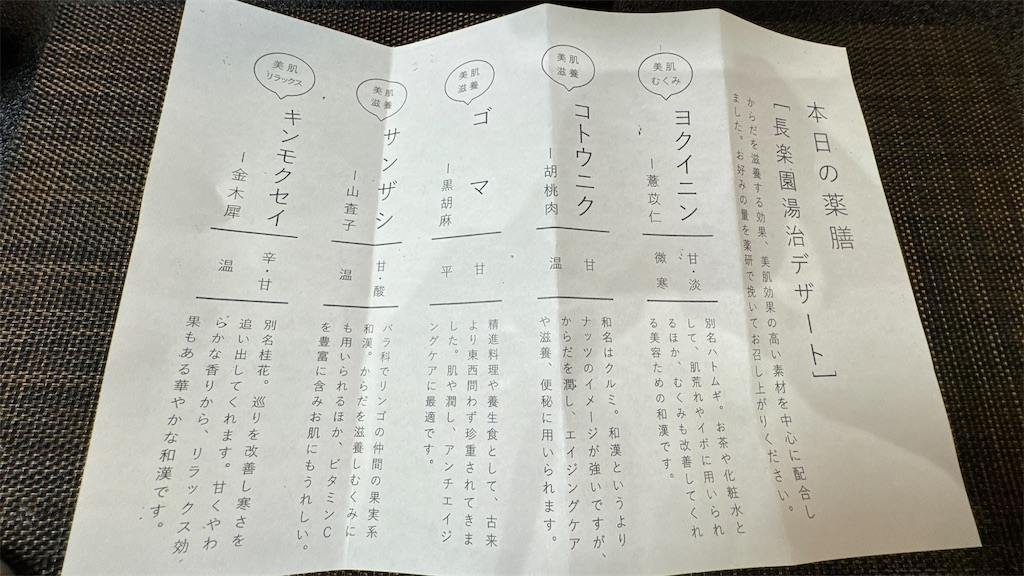 本日の薬膳
［長楽園湯治デザート］
からだを滋養する効果、美肌効果の高い素材を中心に配合し
ました。お好みの量を薬研で挽いてお召し上がりください。
美肌
むくみ
ヨクイニン
ー薏苡仁
甘・淡
微寒
別名ハトムギ。お茶や化粧水と
して、肌荒れやイボに用いられ
るほか、むくみも改善してくれ
る美容ための和漢です。
美肌
滋養
コトウニク
ー胡桃肉
甘
温
和名はクルミ。和漢というより
ナッツのイメージが強いですが、
からだを潤し、エイジングケア
や滋養、便秘に用いられます。
美肌
滋養
ゴマ
ー黒胡麻
甘
平
精進料理や養生食として、古来
より東西問わず珍重されてきま
した。肌や潤し、アンチエイジ
ングケアに最適です。
美肌
滋養
サンザシ
ー山査子
甘・酸
温
バラ科でリンゴの仲間の果実系
和漢。からだを滋養しむくみに
も用いられるほか、ビタミンC
を豊富に含みお肌にもうれしい。
美肌
リラックス
キンモクセイ
ー金木犀
辛・甘
温
別名桂花。巡りを改善し寒さを
追い出してくれます。甘くやわ
らかな香りから、リラックス効
果もある華やかな和漢です。